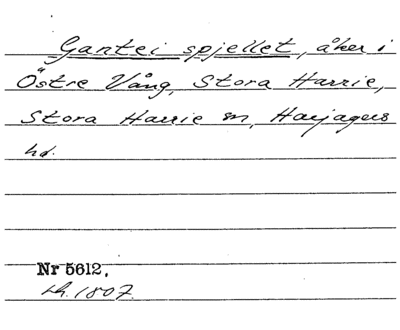 Gantei spjellet, åker i
Östre Vång, Stora Harrie,
Stora Harrie sn, Harjagers
hd.
Nr 5612.
Lh. 1807.